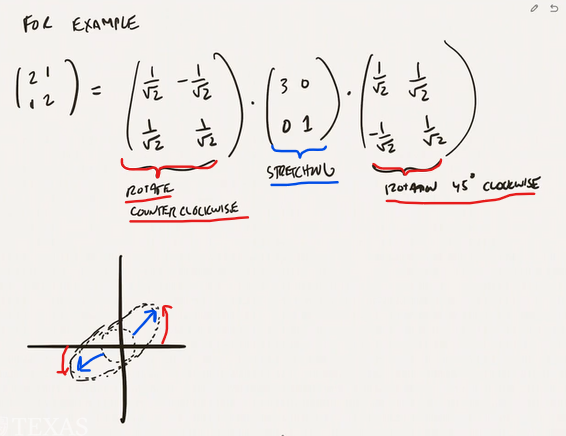 FOR EXAMPLE
(2 1
1 2) = (1/√2 -1/√2
1/√2 1/√2) · (3 0
0 1) · (1/√2 1/√2
-1/√2 1/√2)
ROTATE
COUNTER CLOCKWISE
STRETCHING
ROTATION 45° CLOCKWISE
TEXAS